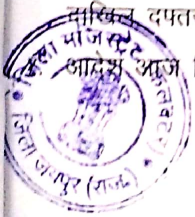 दाखिल दफ्तर
आदेश आज
जिला मजिस्ट्रेट
जिला जयपुर (राज०)